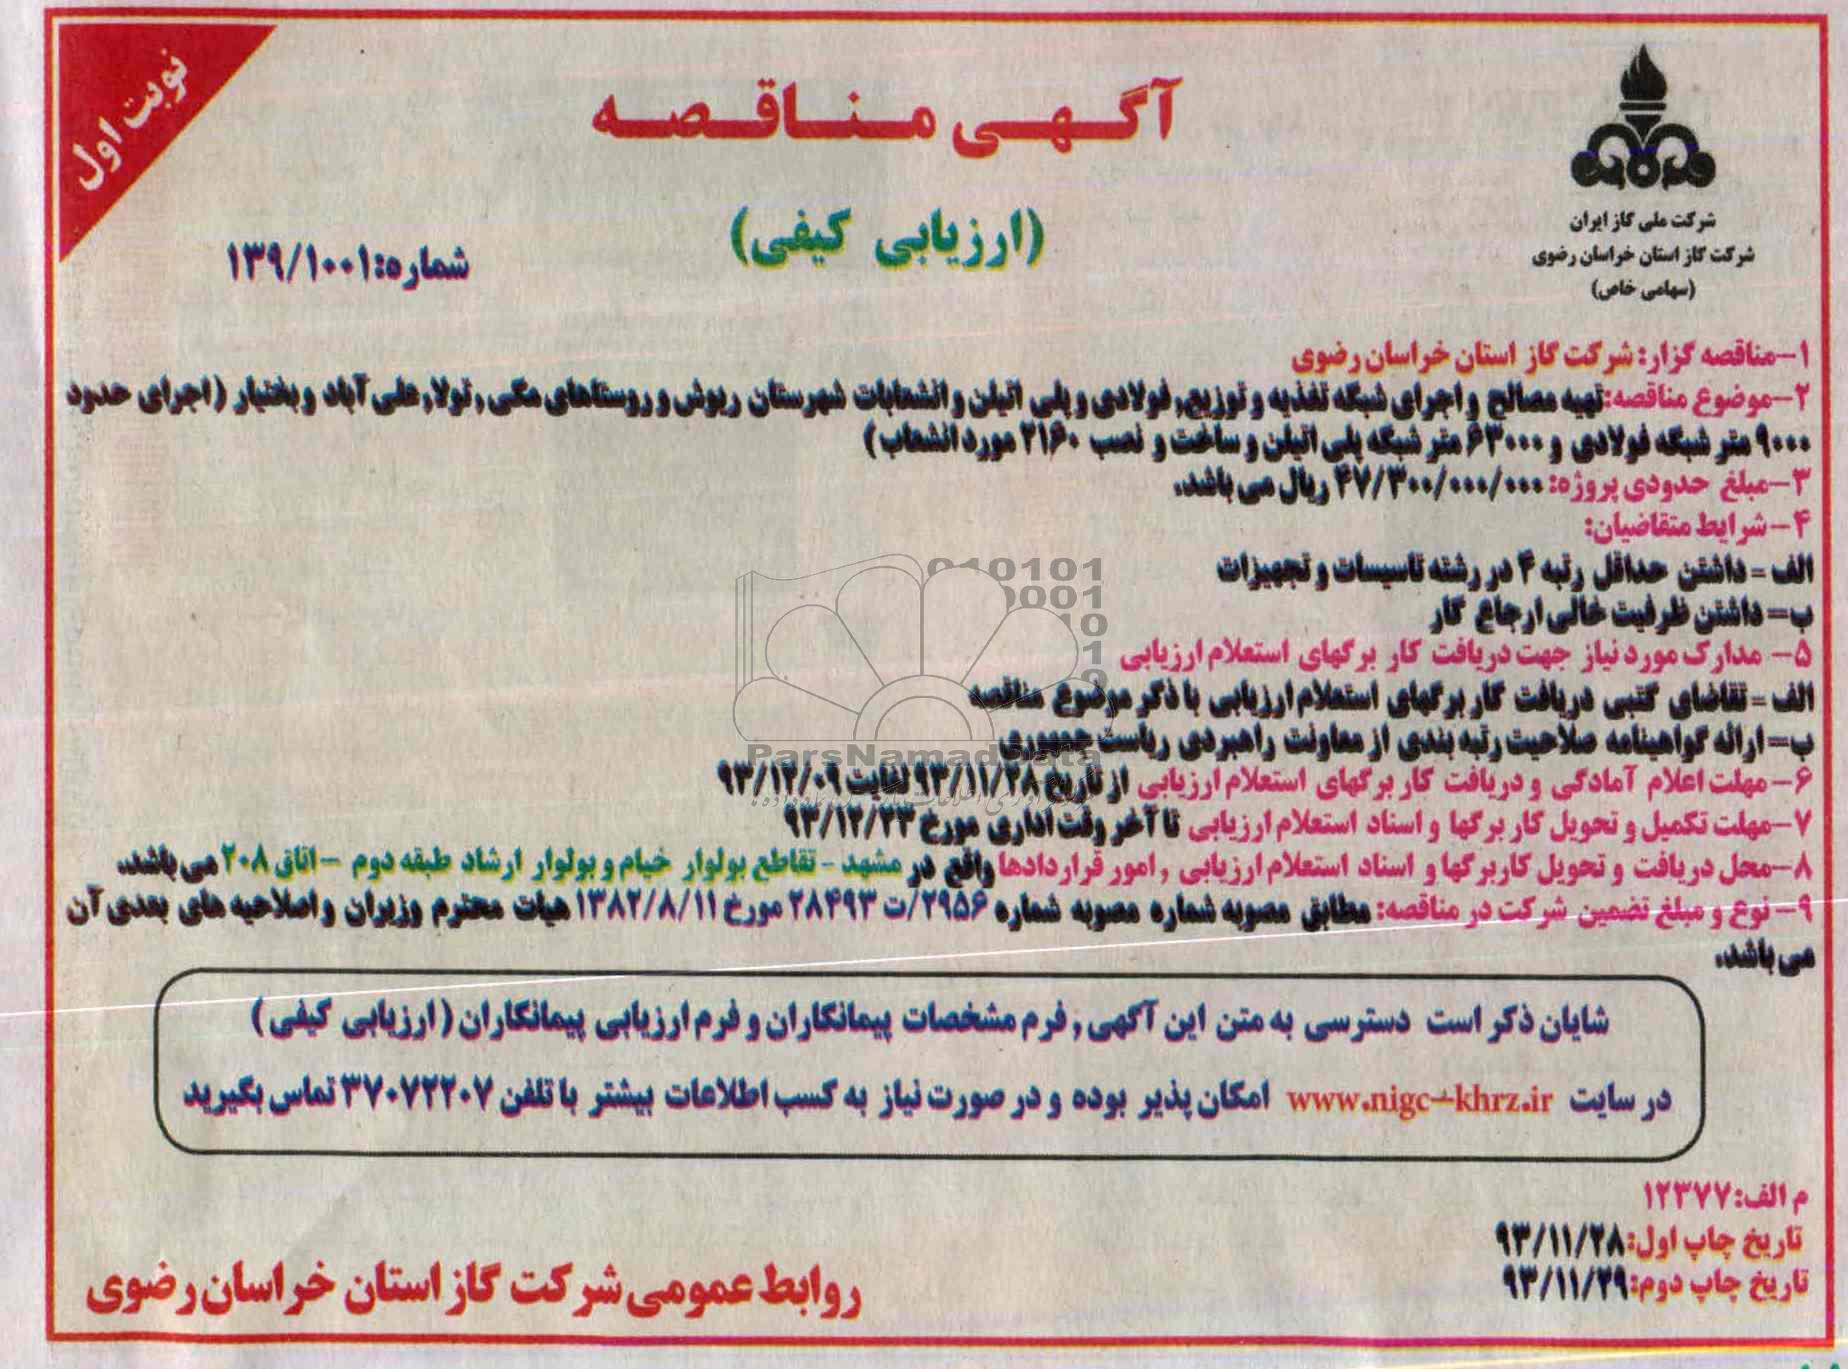 نوبت اول
آگهی مناقصه
(ارزیابی کیفی)
شماره:۱۳۹/۱۰۰۱
شرکت ملی گاز ایران
شرکت گاز استان خراسان رضوی
(سهامی خاص)
۱-مناقصه گزار: شرکت گاز استان خراسان رضوی
۲-موضوع مناقصه:تهیه مصالح و اجرای شبکه تغذیه و توزیع, فولادی و پلی اتیلن و انشعابات شهرستان ریوش و روستاهای مکی, تولا, علی آباد و بختیار (اجرای حدود
۹۰۰۰ متر شبکه فولادی و ۶۳۰۰۰ متر شبکه پلی اتیلن و ساخت و نصب ۲۱۶۰ مورد انشعاب)
۳-مبلغ حدودی پروژه: ۴۷/۳۰۰/۰۰۰/۰۰۰ ریال می باشد.
۴-شرایط متقاضیان:
الف - داشتن حداقل رتبه ۴ در رشته تاسیسات و تجهیزات
ب= داشتن ظرفیت خالی ارجاع کار
۵- مدارک مورد نیاز جهت دریافت کار برگهای استعلام ارزیابی
الف - تقاضای کتبی دریافت کار برگهای استعلام ارزیابی با ذکر موضوع مناقصه
ب= ارائه گواهینامه صلاحیت رتبه بندی از معاونت راهبردی ریاست جمهوری
۶- مهلت اعلام آمادگی و دریافت کار برگهای استعلام ارزیابی از تاریخ ۹۳/۱۱/۲۸ لغایت ۹۳/۱۲/۰۹
۷-مهلت تکمیل و تحویل کار برگها و اسناد استعلام ارزیابی تا آخر وقت اداری مورخ ۹۳/۱۲/۲۳
۸-محل دریافت و تحویل کاربرگها و اسناد استعلام ارزیابی , امور قراردادها واقع در مشهد - تقاطع بولوار خیام و بولوار ارشاد طبقه دوم -اتاق ۲۰۸ می باشد.
۹- نوع و مبلغ تضمین شرکت در مناقصه: مطابق مصوبه شماره مصوبه شماره ۲۹۵۶/ت ۲۸۴۹۳ مورخ ۱۳۸۲/۸/۱۱ هیات محترم وزیران و اصلاحیه های بعدی آن
می باشد.
شایان ذکر است دسترسی به متن این آگهی, فرم مشخصات پیمانکاران و فرم ارزیابی پیمانکاران (ارزیابی کیفی)
در سایت www.nigc-khrz.ir امکان پذیر بوده و در صورت نیاز به کسب اطلاعات بیشتر با تلفن ۳۷۰۷۲۲۰۷ تماس بگیرید
م الف:۱۲۳۷۷
تاریخ چاپ اول:۹۳/۱۱/۲۸
تاریخ چاپ دوم:۹۳/۱۱/۲۹
روابط عمومی شرکت گاز استان خراسان رضوی
ParsNamadData